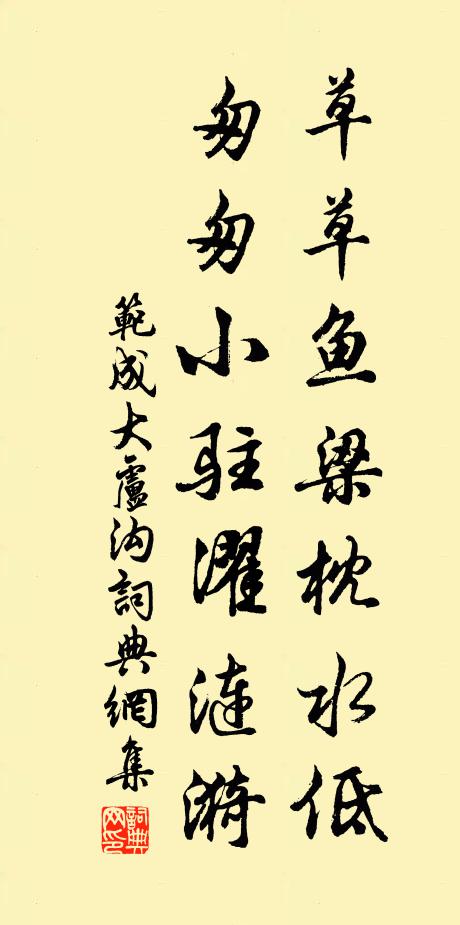 草草鱼梁枕水低
匆匆小驻濯涟漪
範成大盧沟詞典網集
詞典
网印